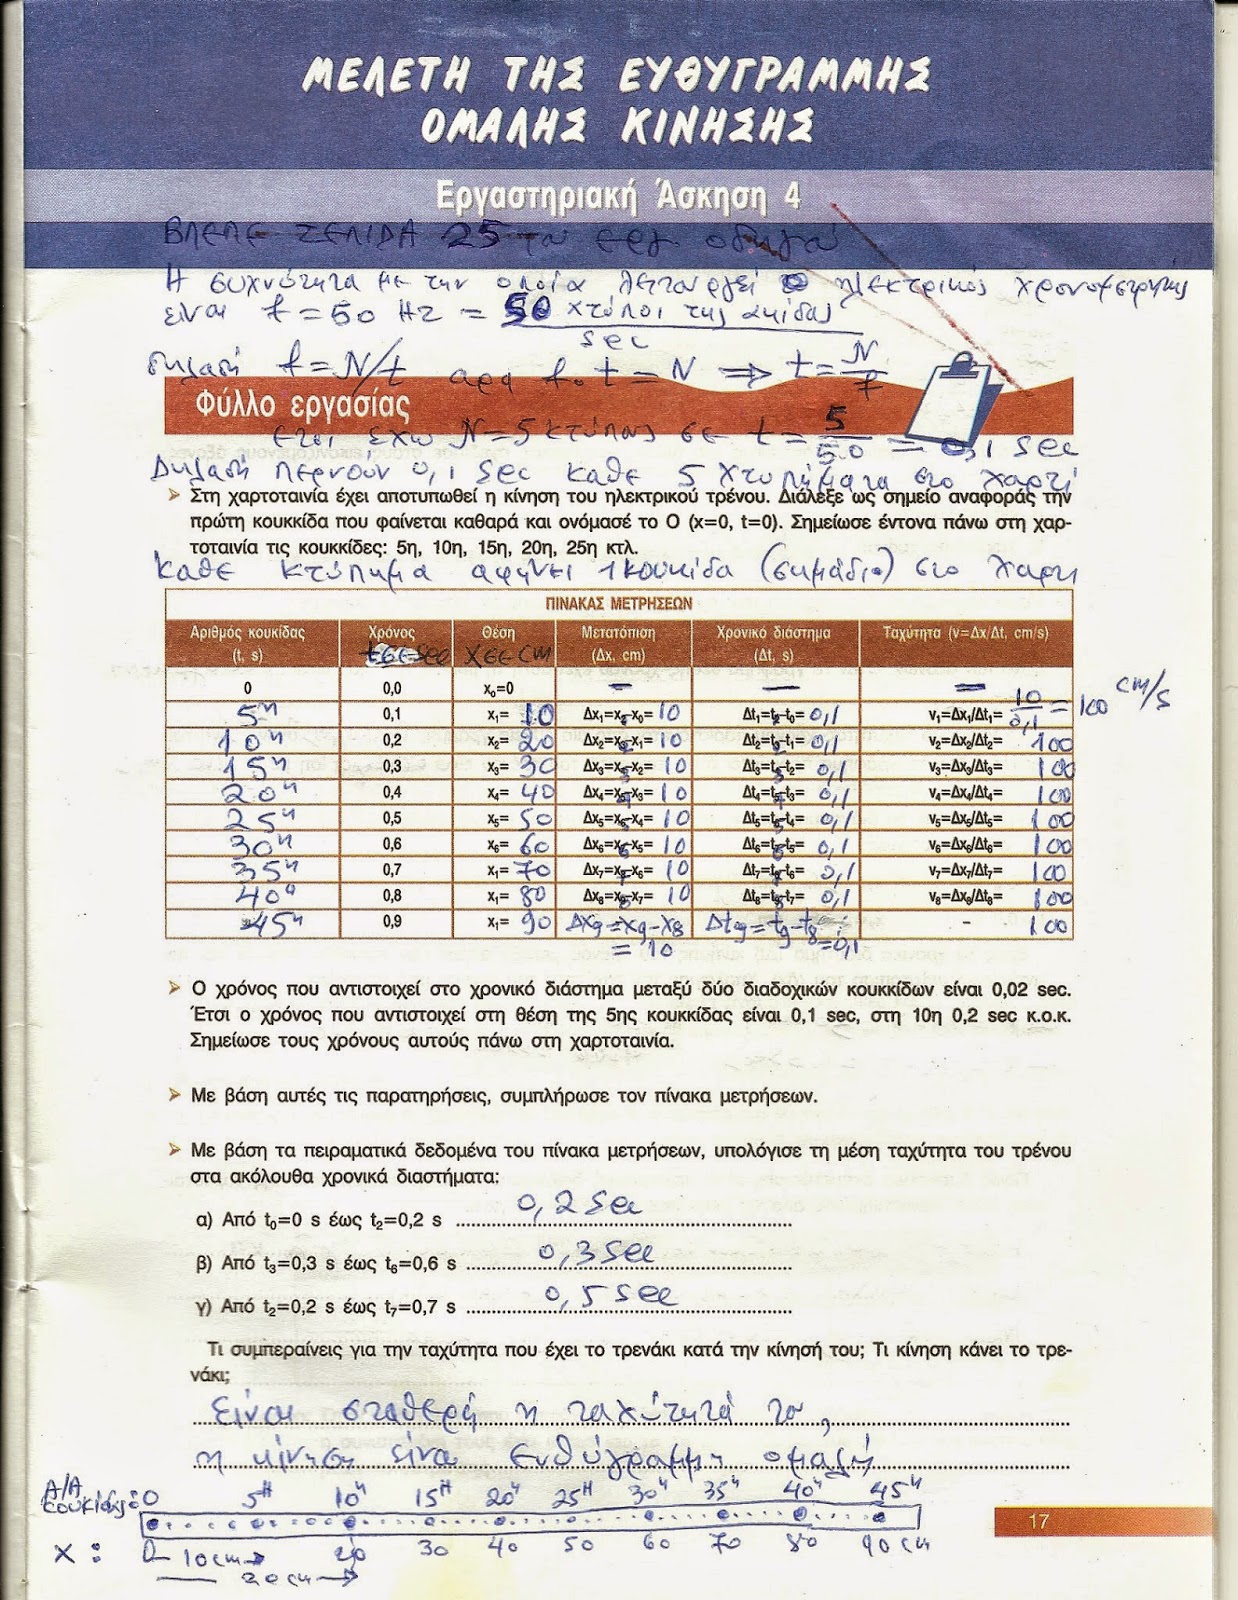 ΜΕΛΕΤΗ ΤΗΣ ΕΥΘΥΓΡΑΜΜΗΣ
ΟΜΑΛΗΣ ΚΙΝΗΣΗΣ
Εργαστηριακή Άσκηση 4
ΒΛΕΠΕ ΣΕΛΙΔΑ 25 του εργ οδηγού
Η συχνότητα με την οποία λειτουργεί ο ηλεκτρικός χρονομετρητής
είναι f = 50 Hz = 50 χτύποι της ακίδας
sec
δηλαδή f = N/t αρα f . t = N ⇒ t = N/f
Φύλλο εργασίας
ετσι εχω N = 5 κτύπους σε t = 5/50 = 0,1 sec
Δηλαδή περνούν 0,1 sec καθε 5 χτυπήματα στο χαρτί
➢ Στη χαρτοταινία έχει αποτυπωθεί η κίνηση του ηλεκτρικού τρένου. Διάλεξε ως σημείο αναφοράς την
πρώτη κουκκίδα που φαίνεται καθαρά και ονόμασέ το Ο (x=0, t=0). Σημείωσε έντονα πάνω στη χαρ-
τοταινία τις κουκκίδες: 5η, 10η, 15η, 20η, 25η κτλ.
καθε κτύπημα αφήνει 1 κουκίδα (σημάδι) στο χαρτι
ΠΙΝΑΚΑΣ ΜΕΤΡΗΣΕΩΝ
Αριθμός κουκίδας Χρόνος Θέση Μετατόπιση Χρονικό διάστημα Ταχύτητα (v=Δx/Δt, cm/s)
(t, s) t σε sec X σε cm (Δx, cm) (Δt, s)
0 0,0 x₀=0 — — —
5η 0,1 x₁= 10 Δx₁=x₁-x₀= 10 Δt₁=t₁-t₀= 0,1 v₁=Δx₁/Δt₁= 10/0,1 = 100 cm/s
10η 0,2 x₂= 20 Δx₂=x₂-x₁= 10 Δt₂=t₂-t₁= 0,1 v₂=Δx₂/Δt₂= 100
15η 0,3 x₃= 30 Δx₃=x₃-x₂= 10 Δt₃=t₃-t₂= 0,1 v₃=Δx₃/Δt₃= 100
20η 0,4 x₄= 40 Δx₄=x₄-x₃= 10 Δt₄=t₄-t₃= 0,1 v₄=Δx₄/Δt₄= 100
25η 0,5 x₅= 50 Δx₅=x₅-x₄= 10 Δt₅=t₅-t₄= 0,1 v₅=Δx₅/Δt₅= 100
30η 0,6 x₆= 60 Δx₆=x₆-x₅= 10 Δt₆=t₆-t₅= 0,1 v₆=Δx₆/Δt₆= 100
35η 0,7 x₁= 70 Δx₇=x₇-x₆= 10 Δt₇=t₇-t₆= 0,1 v₇=Δx₇/Δt₇= 100
40η 0,8 x₁= 80 Δx₈=x₈-x₇= 10 Δt₈=t₈-t₇= 0,1 v₈=Δx₈/Δt₈= 100
45η 0,9 x₁= 90 Δx₉=x₉-x₈ = 10 Δt₉=t₉-t₈ = 0,1 - 100
➢ Ο χρόνος που αντιστοιχεί στο χρονικό διάστημα μεταξύ δύο διαδοχικών κουκκίδων είναι 0,02 sec.
Έτσι ο χρόνος που αντιστοιχεί στη θέση της 5ης κουκκίδας είναι 0,1 sec, στη 10η 0,2 sec κ.ο.κ.
Σημείωσε τους χρόνους αυτούς πάνω στη χαρτοταινία.
➢ Με βάση αυτές τις παρατηρήσεις, συμπλήρωσε τον πίνακα μετρήσεων.
➢ Με βάση τα πειραματικά δεδομένα του πίνακα μετρήσεων, υπολόγισε τη μέση ταχύτητα του τρένου
στα ακόλουθα χρονικά διαστήματα:
α) Από t₀=0 s έως t₂=0,2 s 0,2 sec
β) Από t₃=0,3 s έως t₆=0,6 s 0,3 sec
γ) Από t₂=0,2 s έως t₇=0,7 s 0,5 sec
Τι συμπεραίνεις για την ταχύτητα που έχει το τρενάκι κατά την κίνησή του; Τι κίνηση κάνει το τρε-
νάκι;
Είναι σταθερή η ταχύτητά του,
η κίνηση είναι ευθύγραμμη ομαλή
Α/Α κουκίδας 0 5η 10η 15η 20η 25η 30η 35η 40η 45η
x : 0 10cm 20 30 40 50 60 70 80 90 cm
20 cm
17